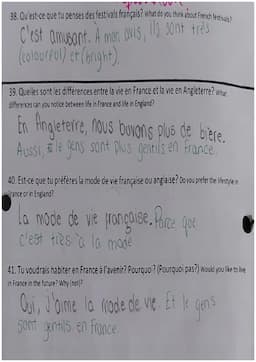 38. Qu'est-ce que tu penses des festivals français? What do you think about French festivals?
C'est amusant. A mon avis, ils sont très
(colourful) et (bright).
39. Quelles sont les différences entre la vie en France et la vie en Angleterre? What
differences can you notice between life in France and life in England?
En Angleterre, nous buvons plus de bière.
Aussi, le gens sont plus gentils en France.
40. Est-ce que tu préfères la mode de vie française ou anglaise? Do you prefer the lifestyle in
France or in England?
La mode de vie française. Parce que
c'est très à la mode
41. Tu voudrais habiter en France à l'avenir? Pourquoi? (Pourquoi pas?) Would you like to live
in France in the future? Why (not)?
Oui, J'aime la mode de vie. Et le gens
sont gentils en France.